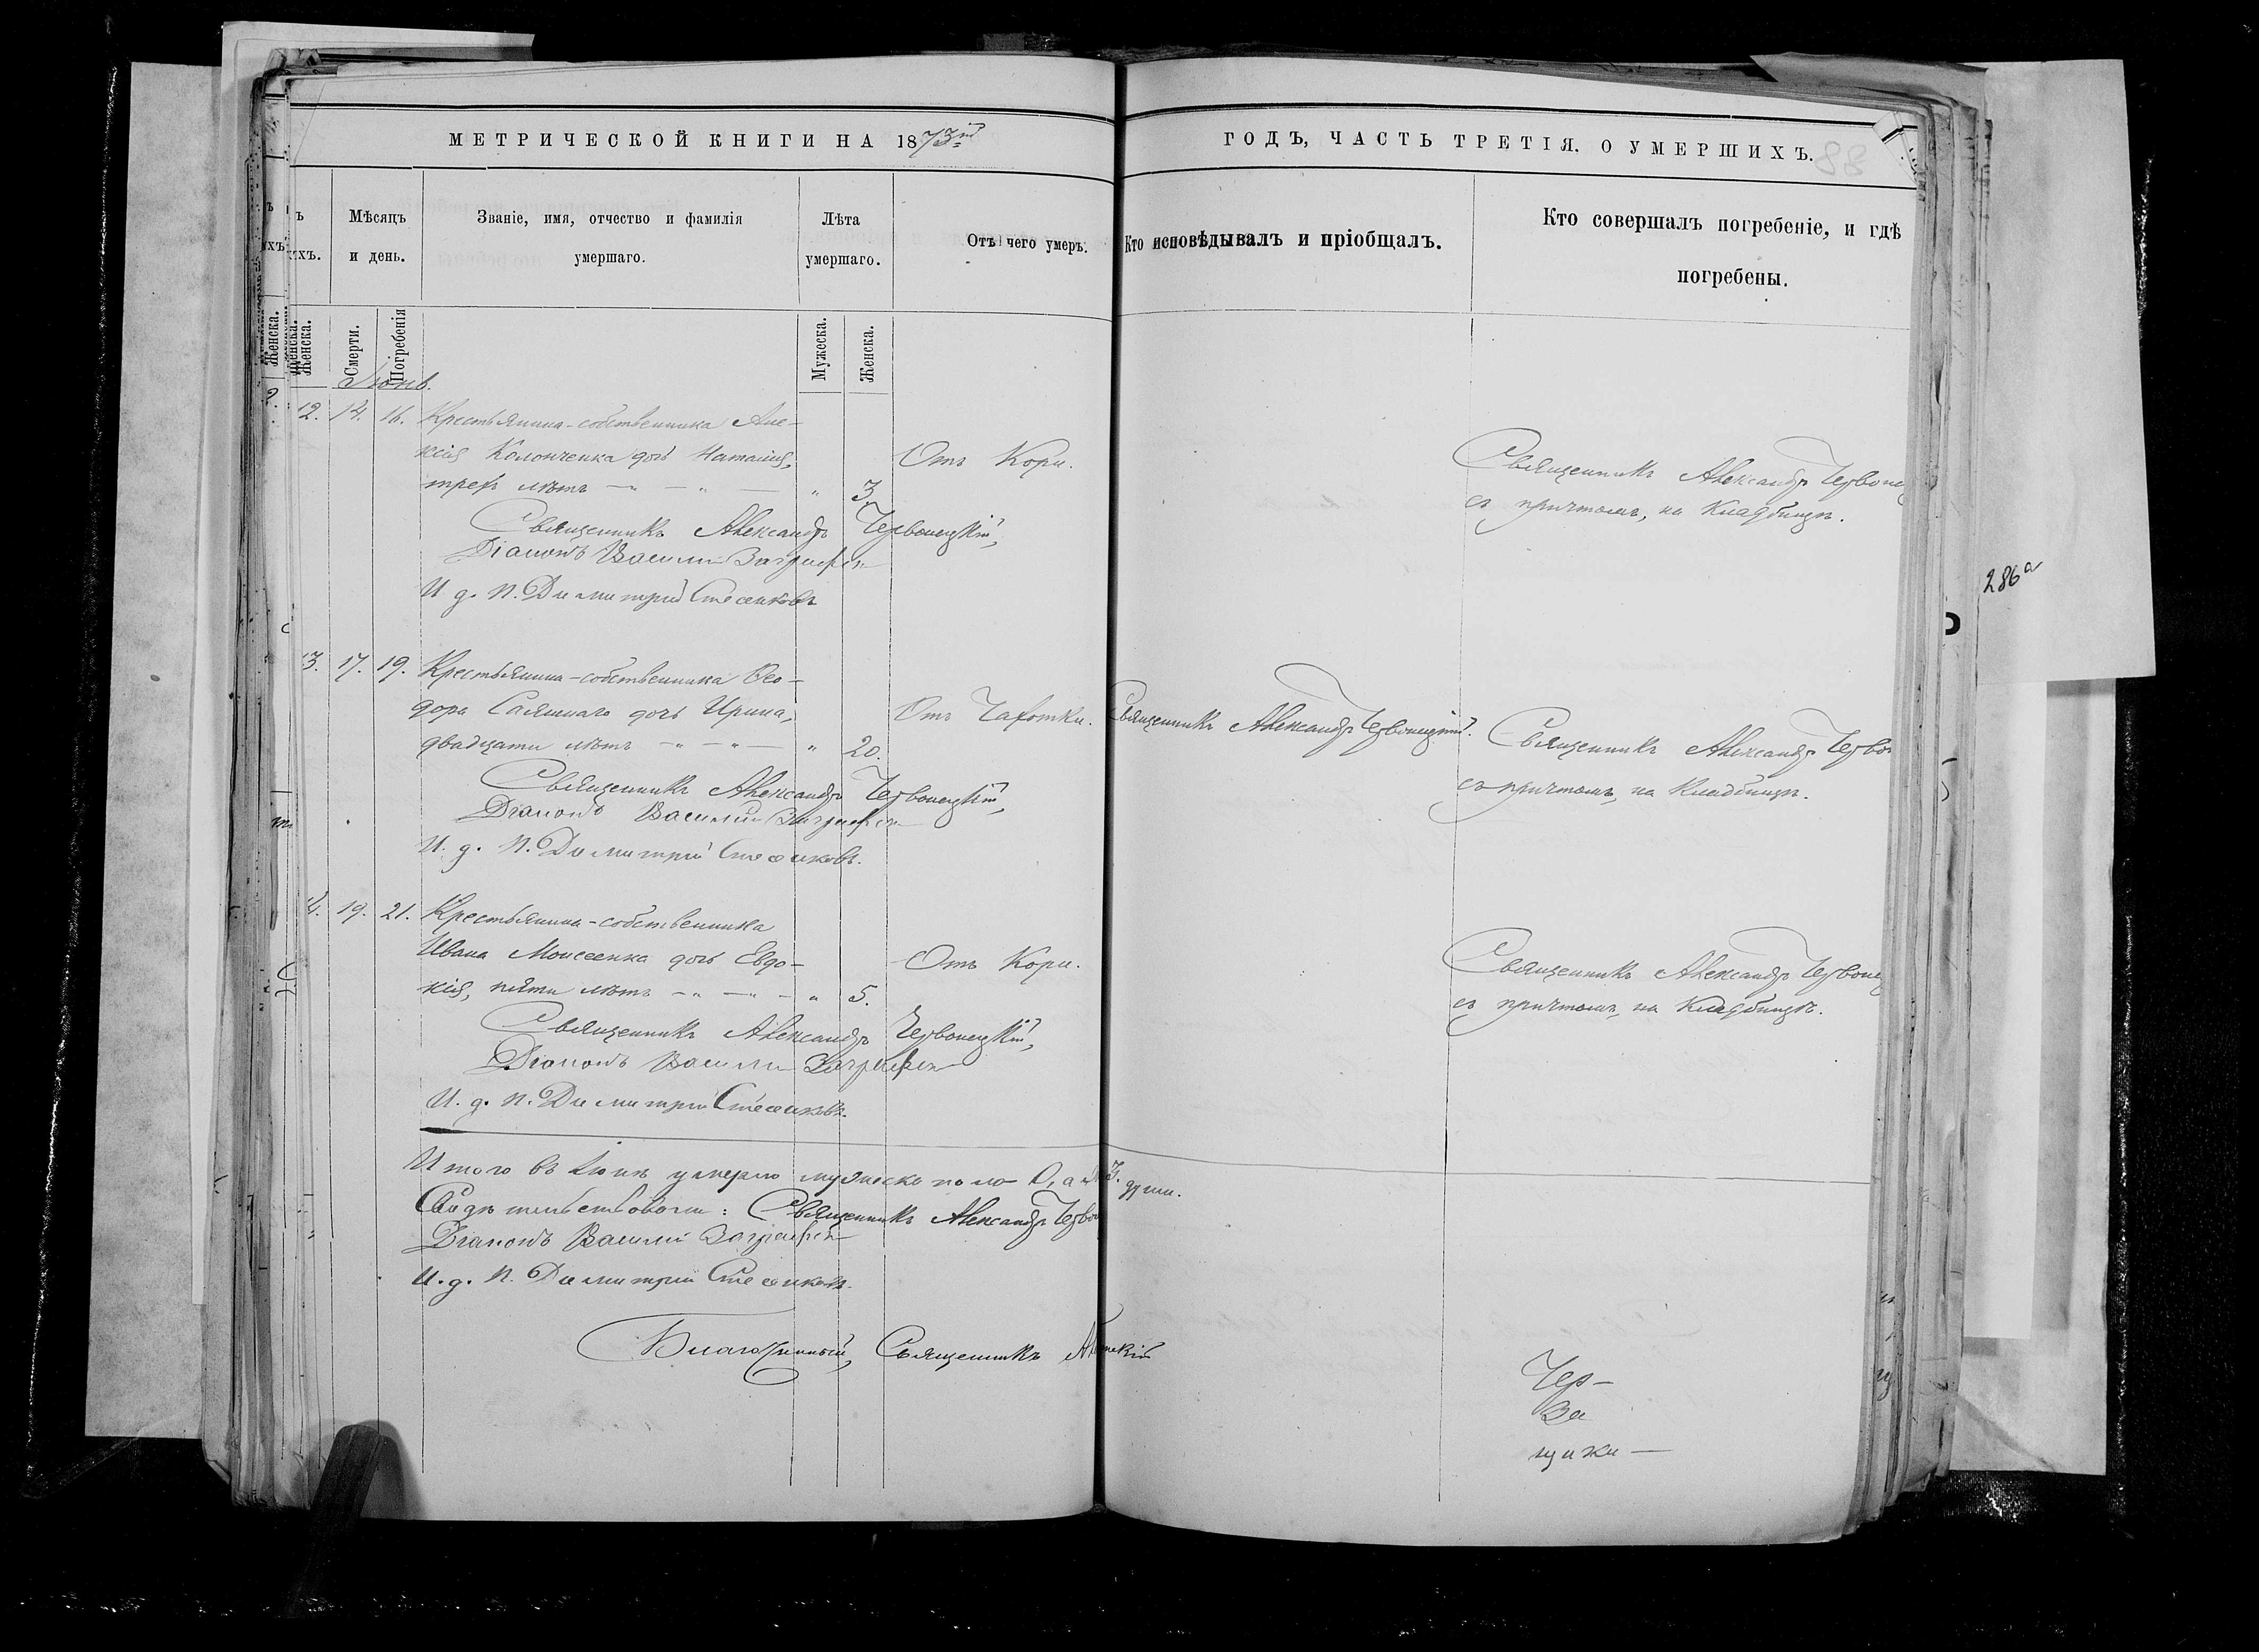 МЕТРИЧЕСКОЙ КНИГИ НА 1873й
ГОДЪ, ЧАСТЬ ТРЕТІЯ. О УМЕРШИХЪ.
88
Мѣсяцъ и день.
Званіе, имя, отчество и фамилія умершаго.
Лѣта умершаго.
Отъ чего умеръ.
Кто исповѣдывалъ и пріобщалъ.
Кто совершалъ погребеніе, и гдѣ погребены.
Женска.
Смерти.
Погребенія
Мужеска.
Женска.
Іюнь.
12. 14. 16. Крестьянина-собственника Але-
ксія Колонченка дочь Наталія,
трехъ лѣтъ — „ — „ — „ 3.
Отъ Кори.
Священникъ Александръ
съ причтомъ, на Кладбищѣ.
Священникъ Александръ Червонецкій,
Діаконъ Василій
И. д. п. Димитрій
13. 17. 19. Крестьянина-собственника Ѳео-
дора дочь Ирина,
двадцати лѣтъ — „ — „ — „ 20.
Отъ Чахотки.
Священникъ Александръ Червонецкій.
Священникъ Александръ Черво
съ причтомъ, на Кладбищѣ.
Священникъ Александръ Червонецкій,
Діаконъ Василій
И. д. п. Димитрій
4. 19. 21. Крестьянина-собственника
Ивана Моисеенка дочь Евдо-
кія, пяти лѣтъ — „ — „ — „ 5.
Отъ Кори.
Священникъ Александръ
съ причтомъ, на Кладбищѣ.
Священникъ Александръ Червонецкій,
Діаконъ Василій
И. д. п. Димитрій
Итого въ Іюнѣ умерло мужеска пола 0, а 3. души.
Свидѣтельствовали: Священникъ Александръ
Діаконъ Василій
И. д. п. Димитрій
Благочинный, Священникъ
Чер-
За
щики —
286а